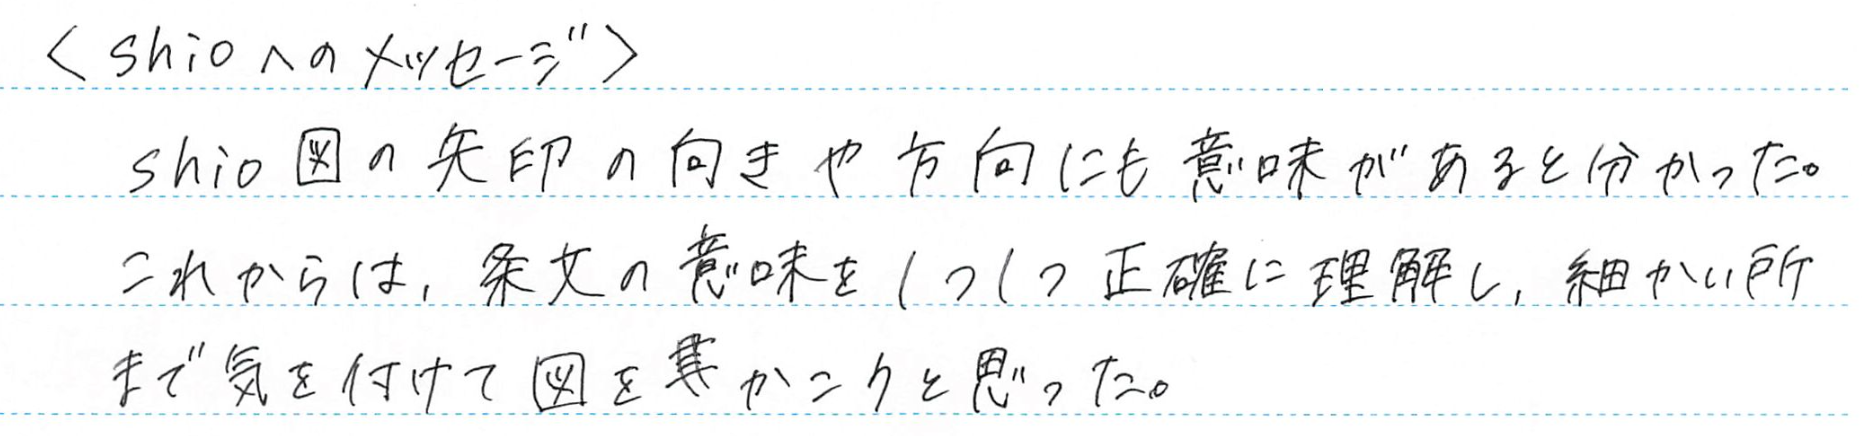 <shioへのメッセージ>
shio図の矢印の向きや方向にも意味があると分かった。
これからは,条文の意味を1つ1つ正確に理解し,細かい所
まで気を付けて図を書かこうと思った。